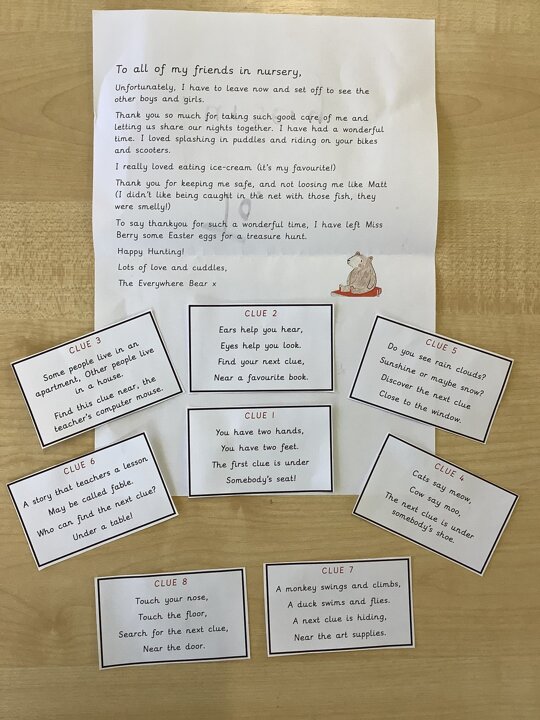 To all of my friends in nursery,
Unfortunately, I have to leave now and set off to see the
other boys and girls.
Thank you so much for taking such good care of me and
letting us share our nights together. I have had a wonderful
time. I loved splashing in puddles and riding on your bikes
and scooters.
I really loved eating ice-cream (it's my favourite!)
Thank you for keeping me safe, and not loosing me like Matt
(I didn't like being caught in the net with those fish, they
were smelly!)
To say thankyou for such a wonderful time, I have left Miss
Berry some Easter eggs for a treasure hunt.
Happy Hunting!
Lots of love and cuddles,
The Everywhere Bear x
CLUE 3
Some people live in an
apartment, Other people live
in a house.
Find this clue near, the
teacher's computer mouse.
CLUE 2
Ears help you hear,
Eyes help you look.
Find your next clue,
Near a favourite book.
CLUE 5
Do you see rain clouds?
Sunshine or maybe snow?
Discover the next clue
Close to the window.
CLUE 1
You have two hands,
You have two feet.
The first clue is under
Somebody's seat!
CLUE 6
A story that teachers a lesson
May be called fable.
Who can find the next clue?
Under a table!
CLUE 4
Cats say meow,
Cow say moo,
The next clue is under
somebody's shoe.
CLUE 8
Touch your nose,
Touch the floor,
Search for the next clue,
Near the door.
CLUE 7
A monkey swings and climbs,
A duck swims and flies.
A next clue is hiding,
Near the art supplies.